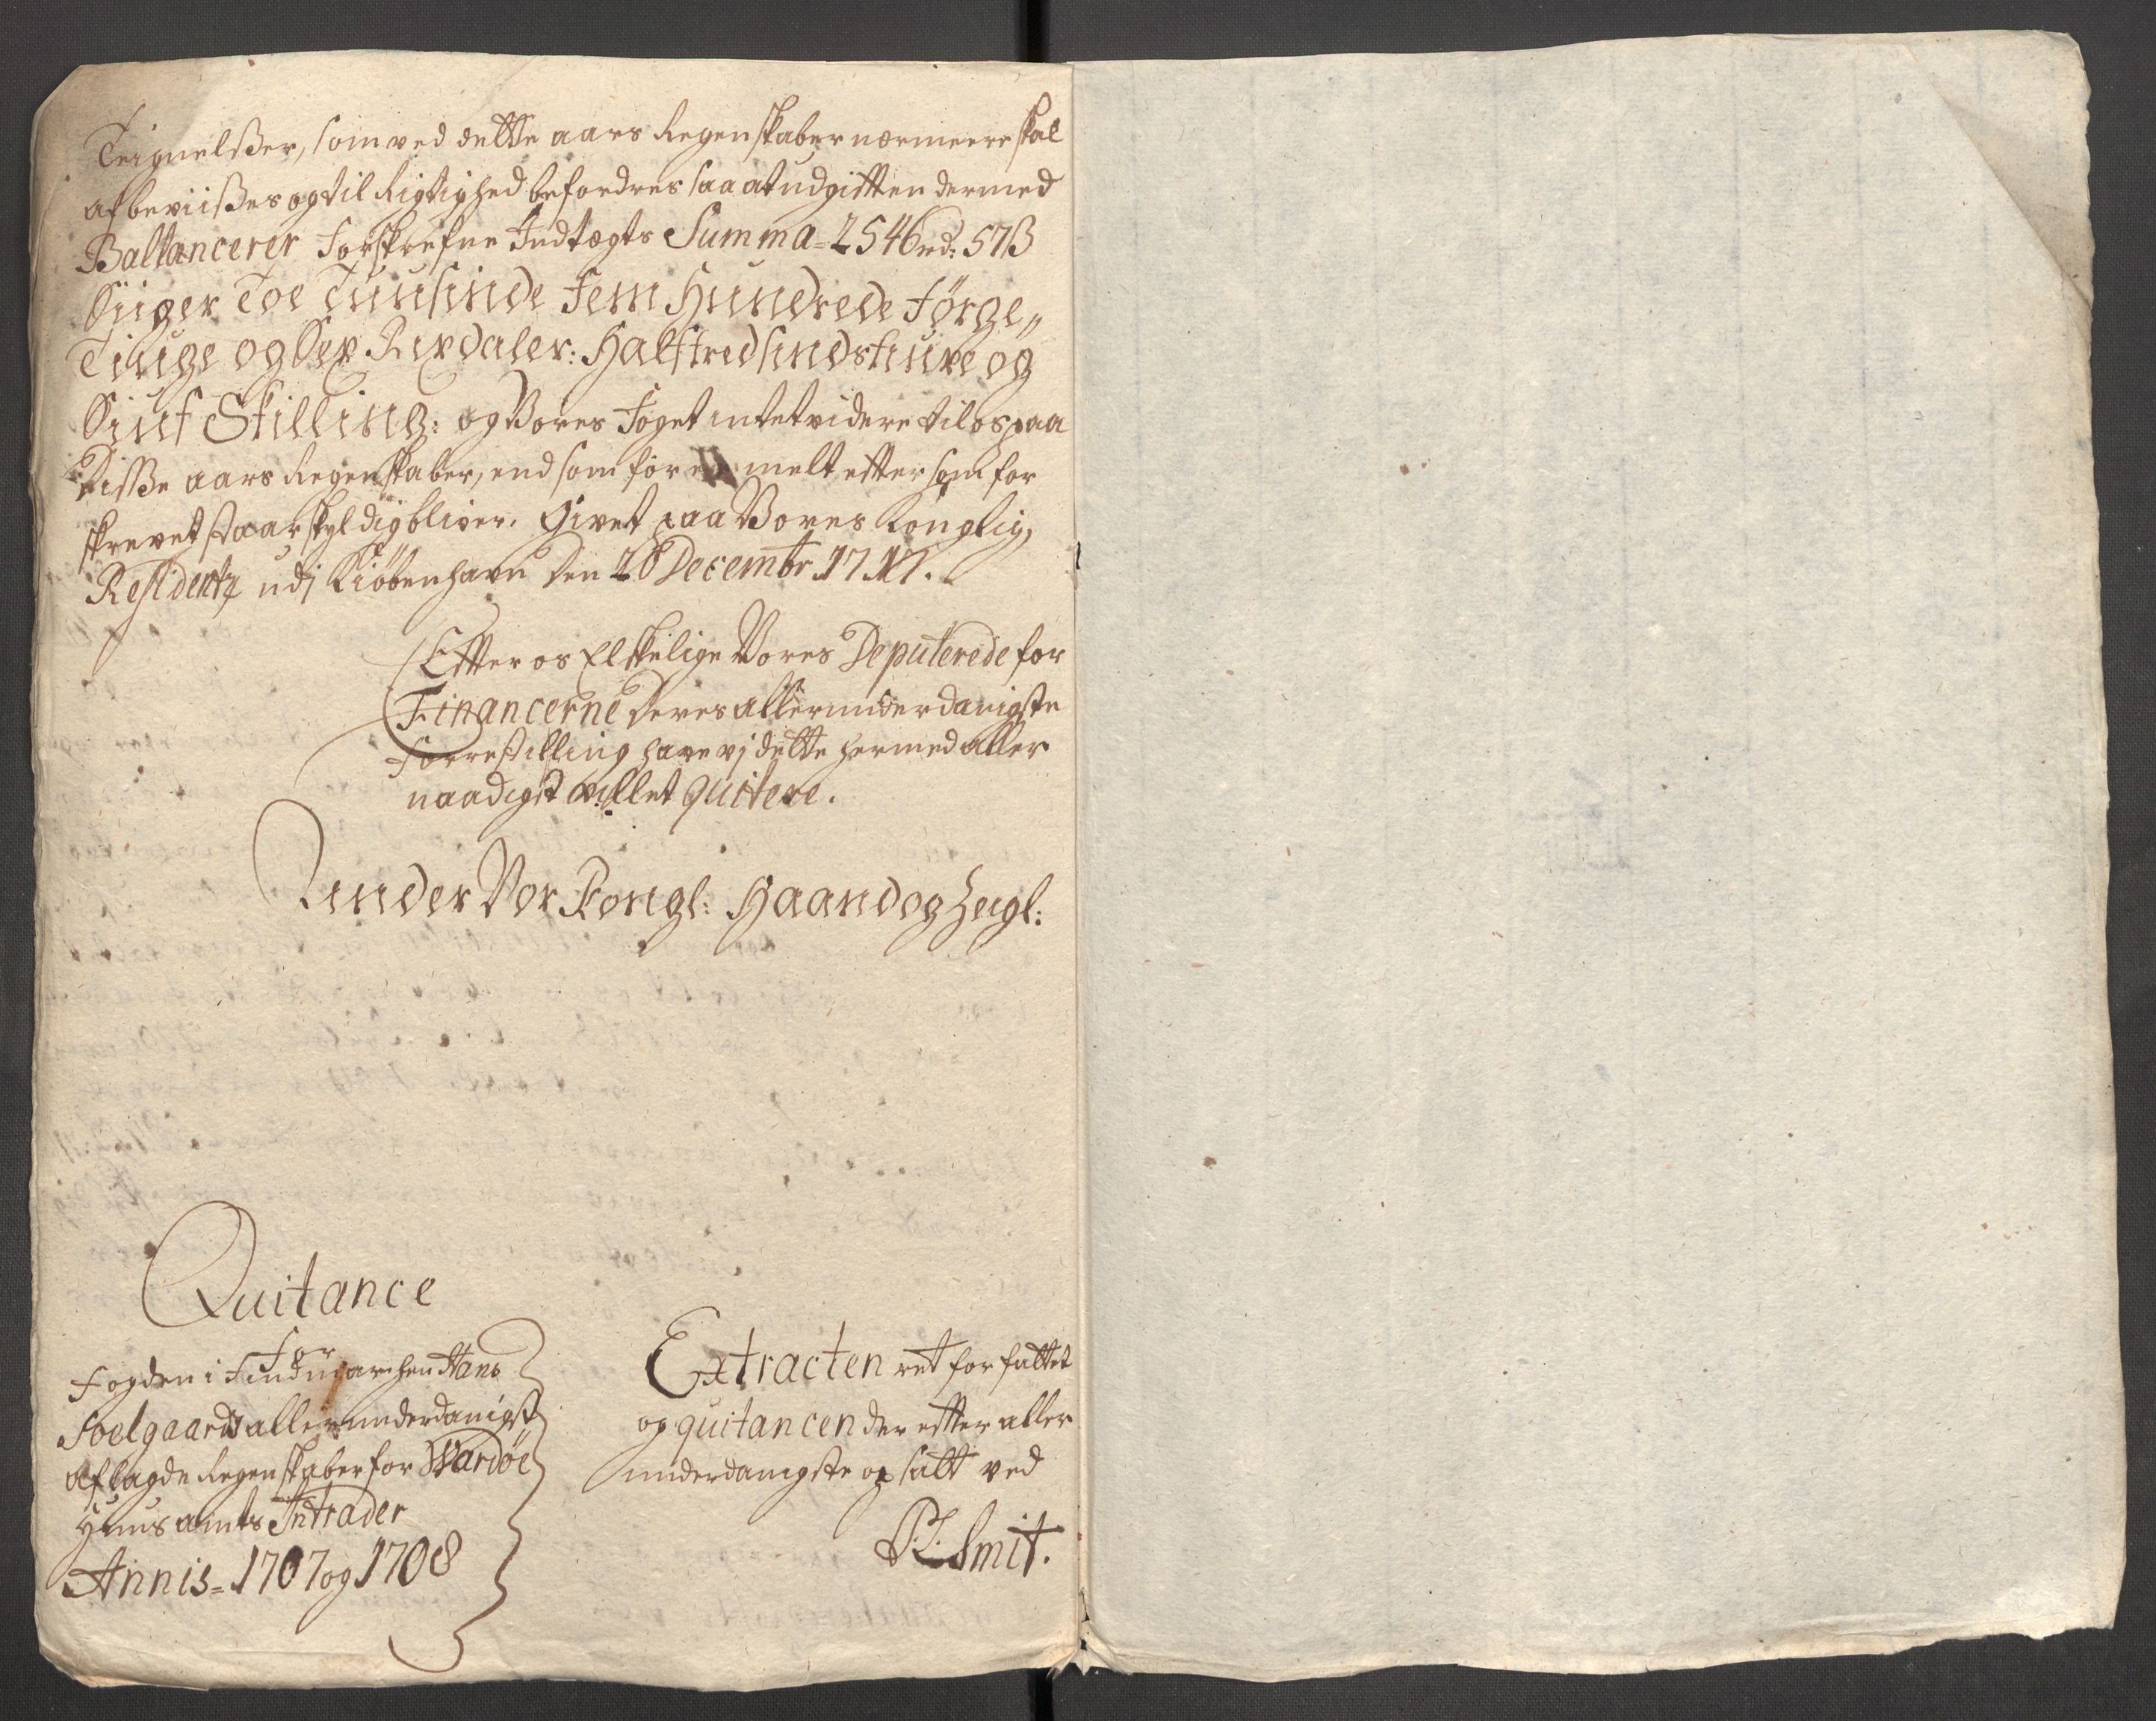 Teignelsßer, som ved dette aars Regenskaber nærmere skal
afbeviisßes og til Rigtighed befordres saa at udgifften dermed
Ballancerer forskrefne Indtægts Summa = 2546 rd: 57 ß
Siiger Toe Tuusinde Fem Hundrede Förge„
Tiuge og Sex Rixdaler: Halftredsindstiuve og
Siuf Skilling: og Vores Foget intet videre til os paa
disße aars Regenskaber, end som för er melt efftersom for
skrevet staar skyldig bliver. Givet paa Vores Konglig,
Residentz udj Kiöbenhavn den 28 Decembr 1717.
Effter os Elskelige Vores Deputerede for
Financerne deres allerunderdanigste
Forrestilling have vj dette hermed aller
naadigst villet quitere.
Under Vor Kongl: Haand og Zeigl:
Quitance
For
Fogden i Findmarchen Hans
Soelgaards allerunderdanigst
aflagde Regenskaber for Wardöe
Huus amts Intrader
Annis = 1707 og 1708
Extracten ret forfattet
og quitancen der effter aller
underdanigste opsatt ved
PL Smit.